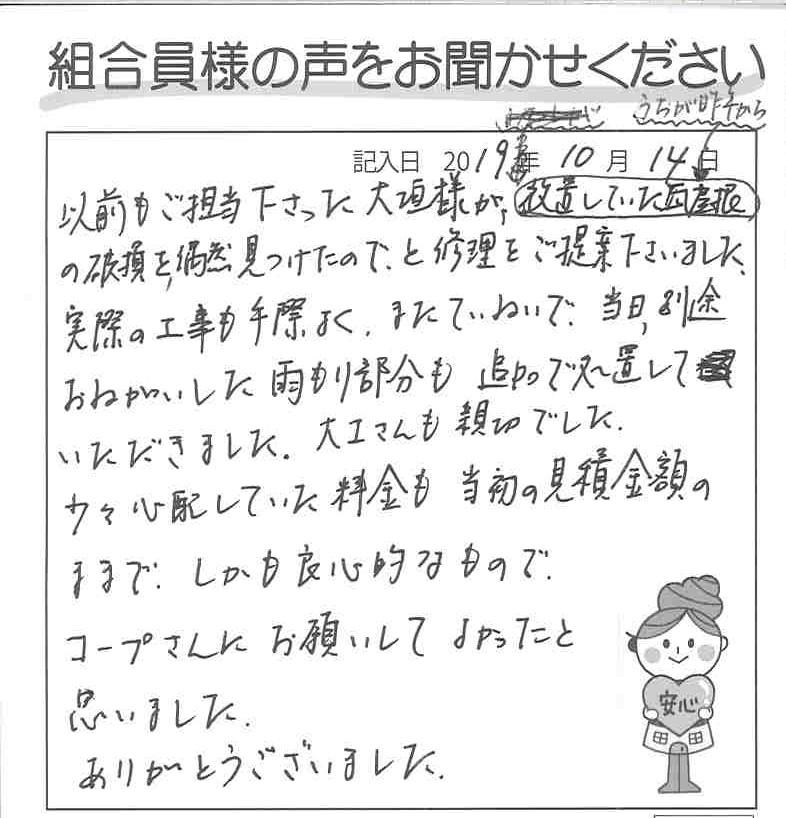 組合員様の声をお聞かせください
うちが昨年から
記入日 2019年 10月 14日
以前もご担当下さった大垣様が、放置していた瓦屋根
の破損を、偶然見つけたので、と修理をご提案下さいました。
実際の工事も手際よく、またていねいで、当日、別途
おねがいした雨もり部分も追加で処置して
いただきました。大工さんも親切でした。
少々心配していた料金も当初の見積金額の
ままで、しかも良心的なもので、
コープさんにお願いしてよかったと
思いました。
ありがとうございました。
安心